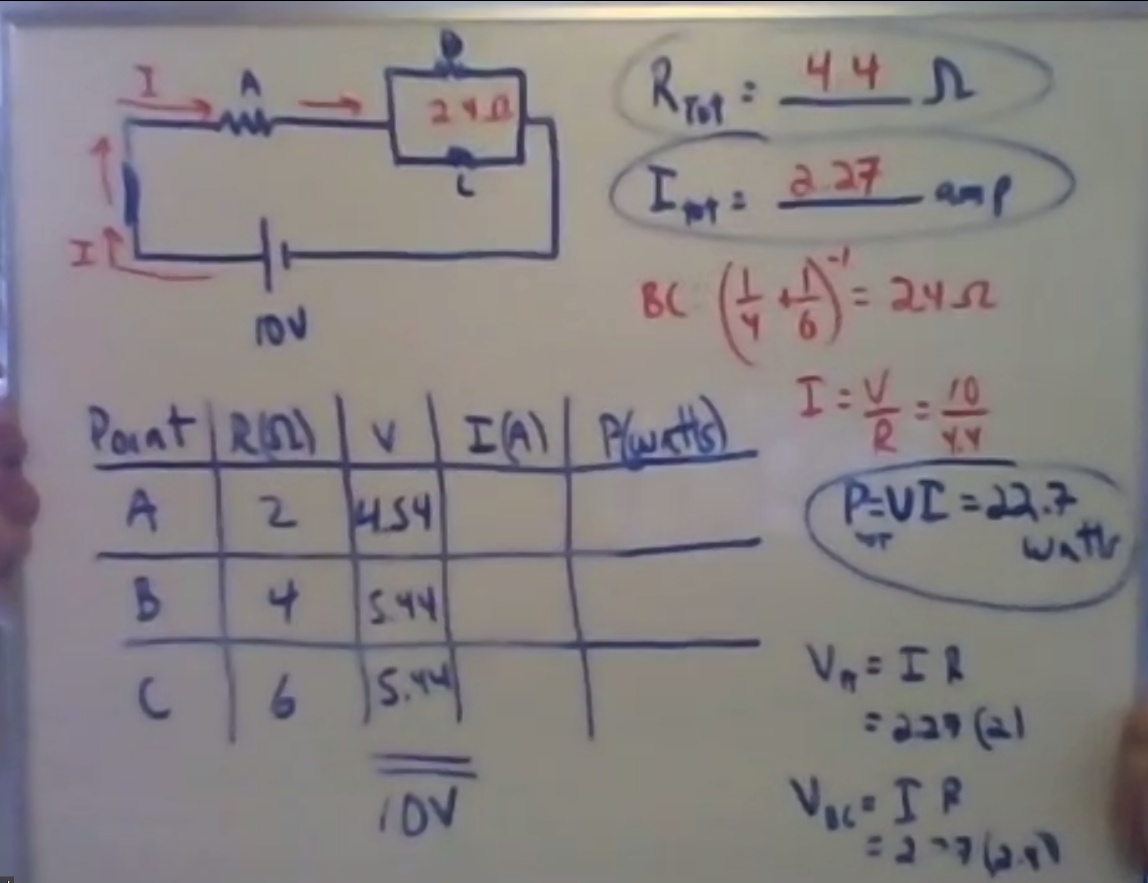 I
A
B
2.4 Ω
C
I
10V
R Tot = 4.4 Ω
I Tot = 2.27 amp
BC (1/4 + 1/6)^-1 = 2.4 Ω
I = V/R = 10/4.4
P = VI = 22.7
watts
Point R(Ω) V I(A) P(watts)
A 2 4.54
B 4 5.44
C 6 5.44
10V
V A = I R
= 2.27 (2)
V BC = I R
= 2.27 (2.4)